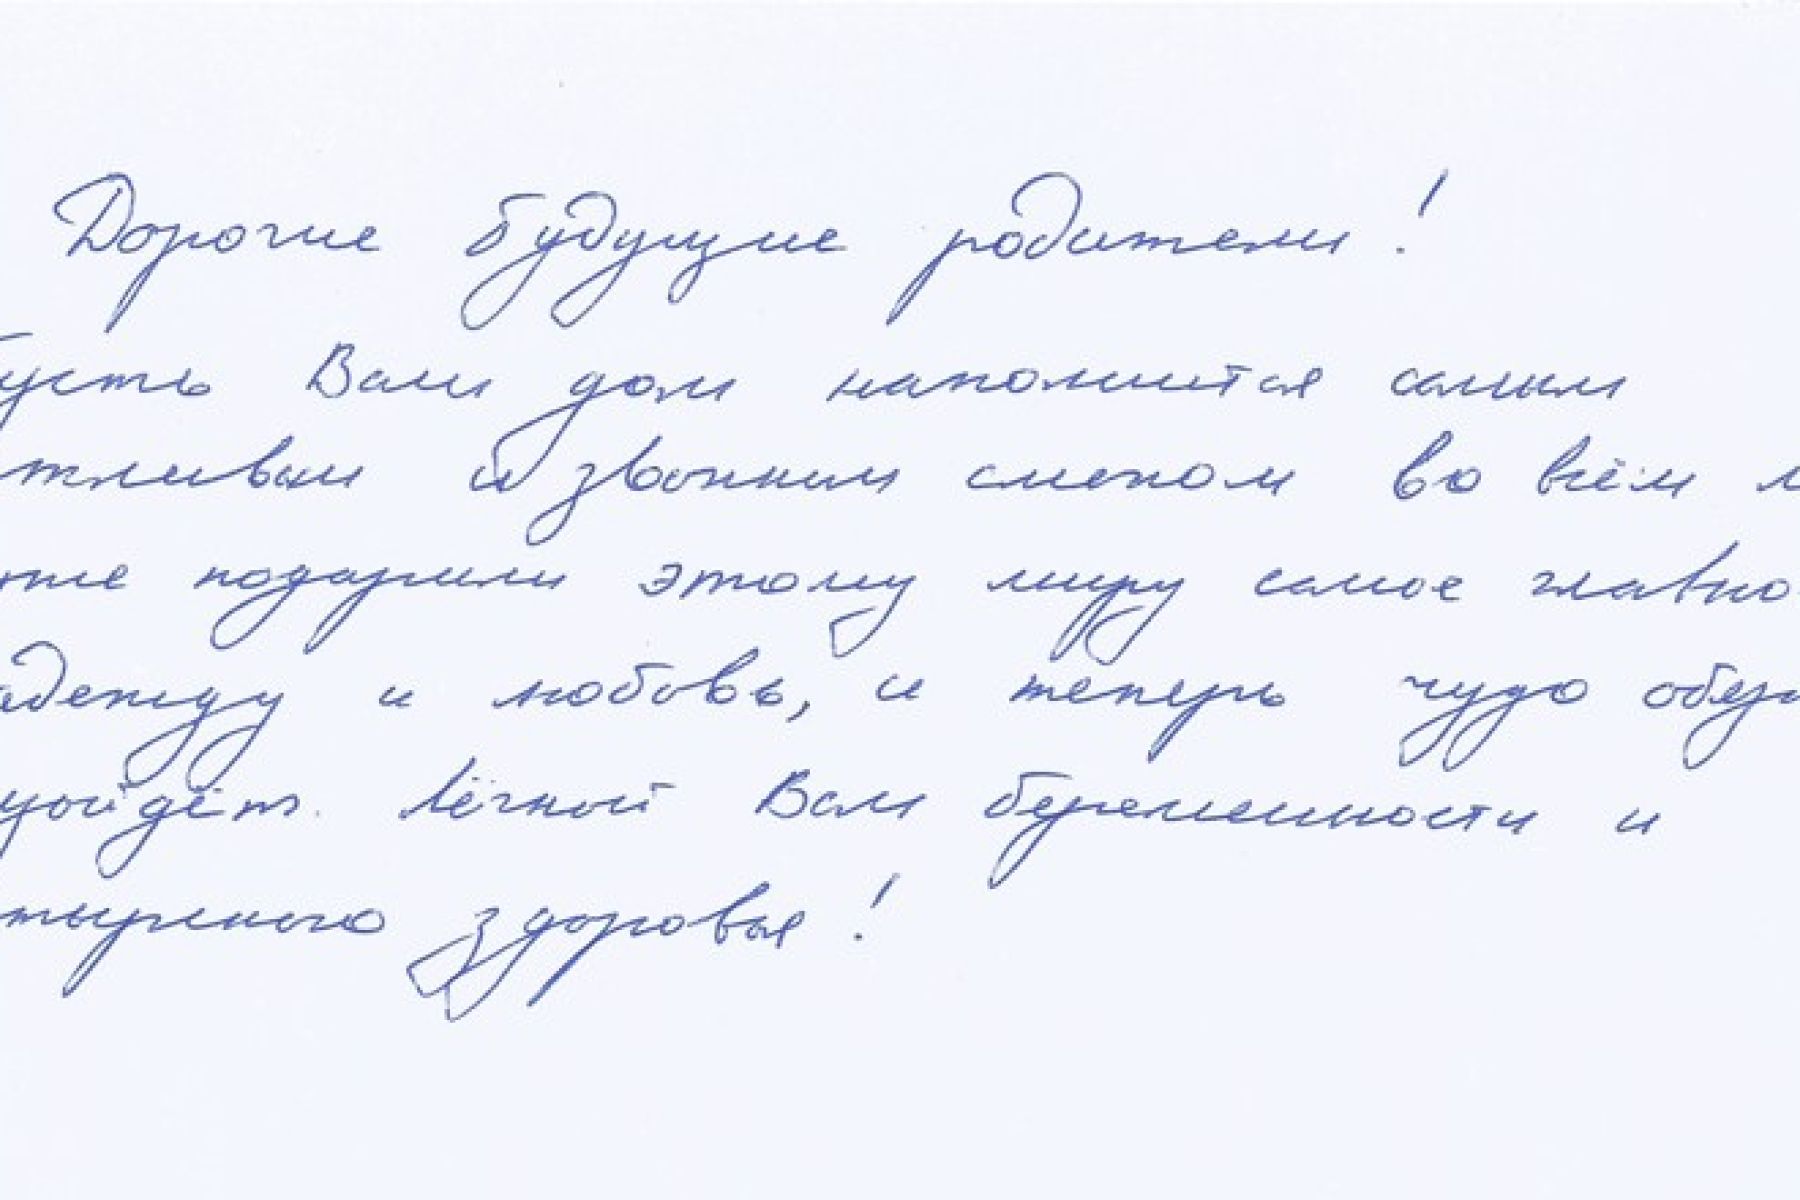 Дорогие будущие родители!
усть Ваш дом наполнится самым
тливым и звонким смехом во всём м
же подарили этому миру самое главно
адежду и любовь, и теперь чудо обяз
ойдёт. Лёгкой Вам беременности и
тырского здоровья!